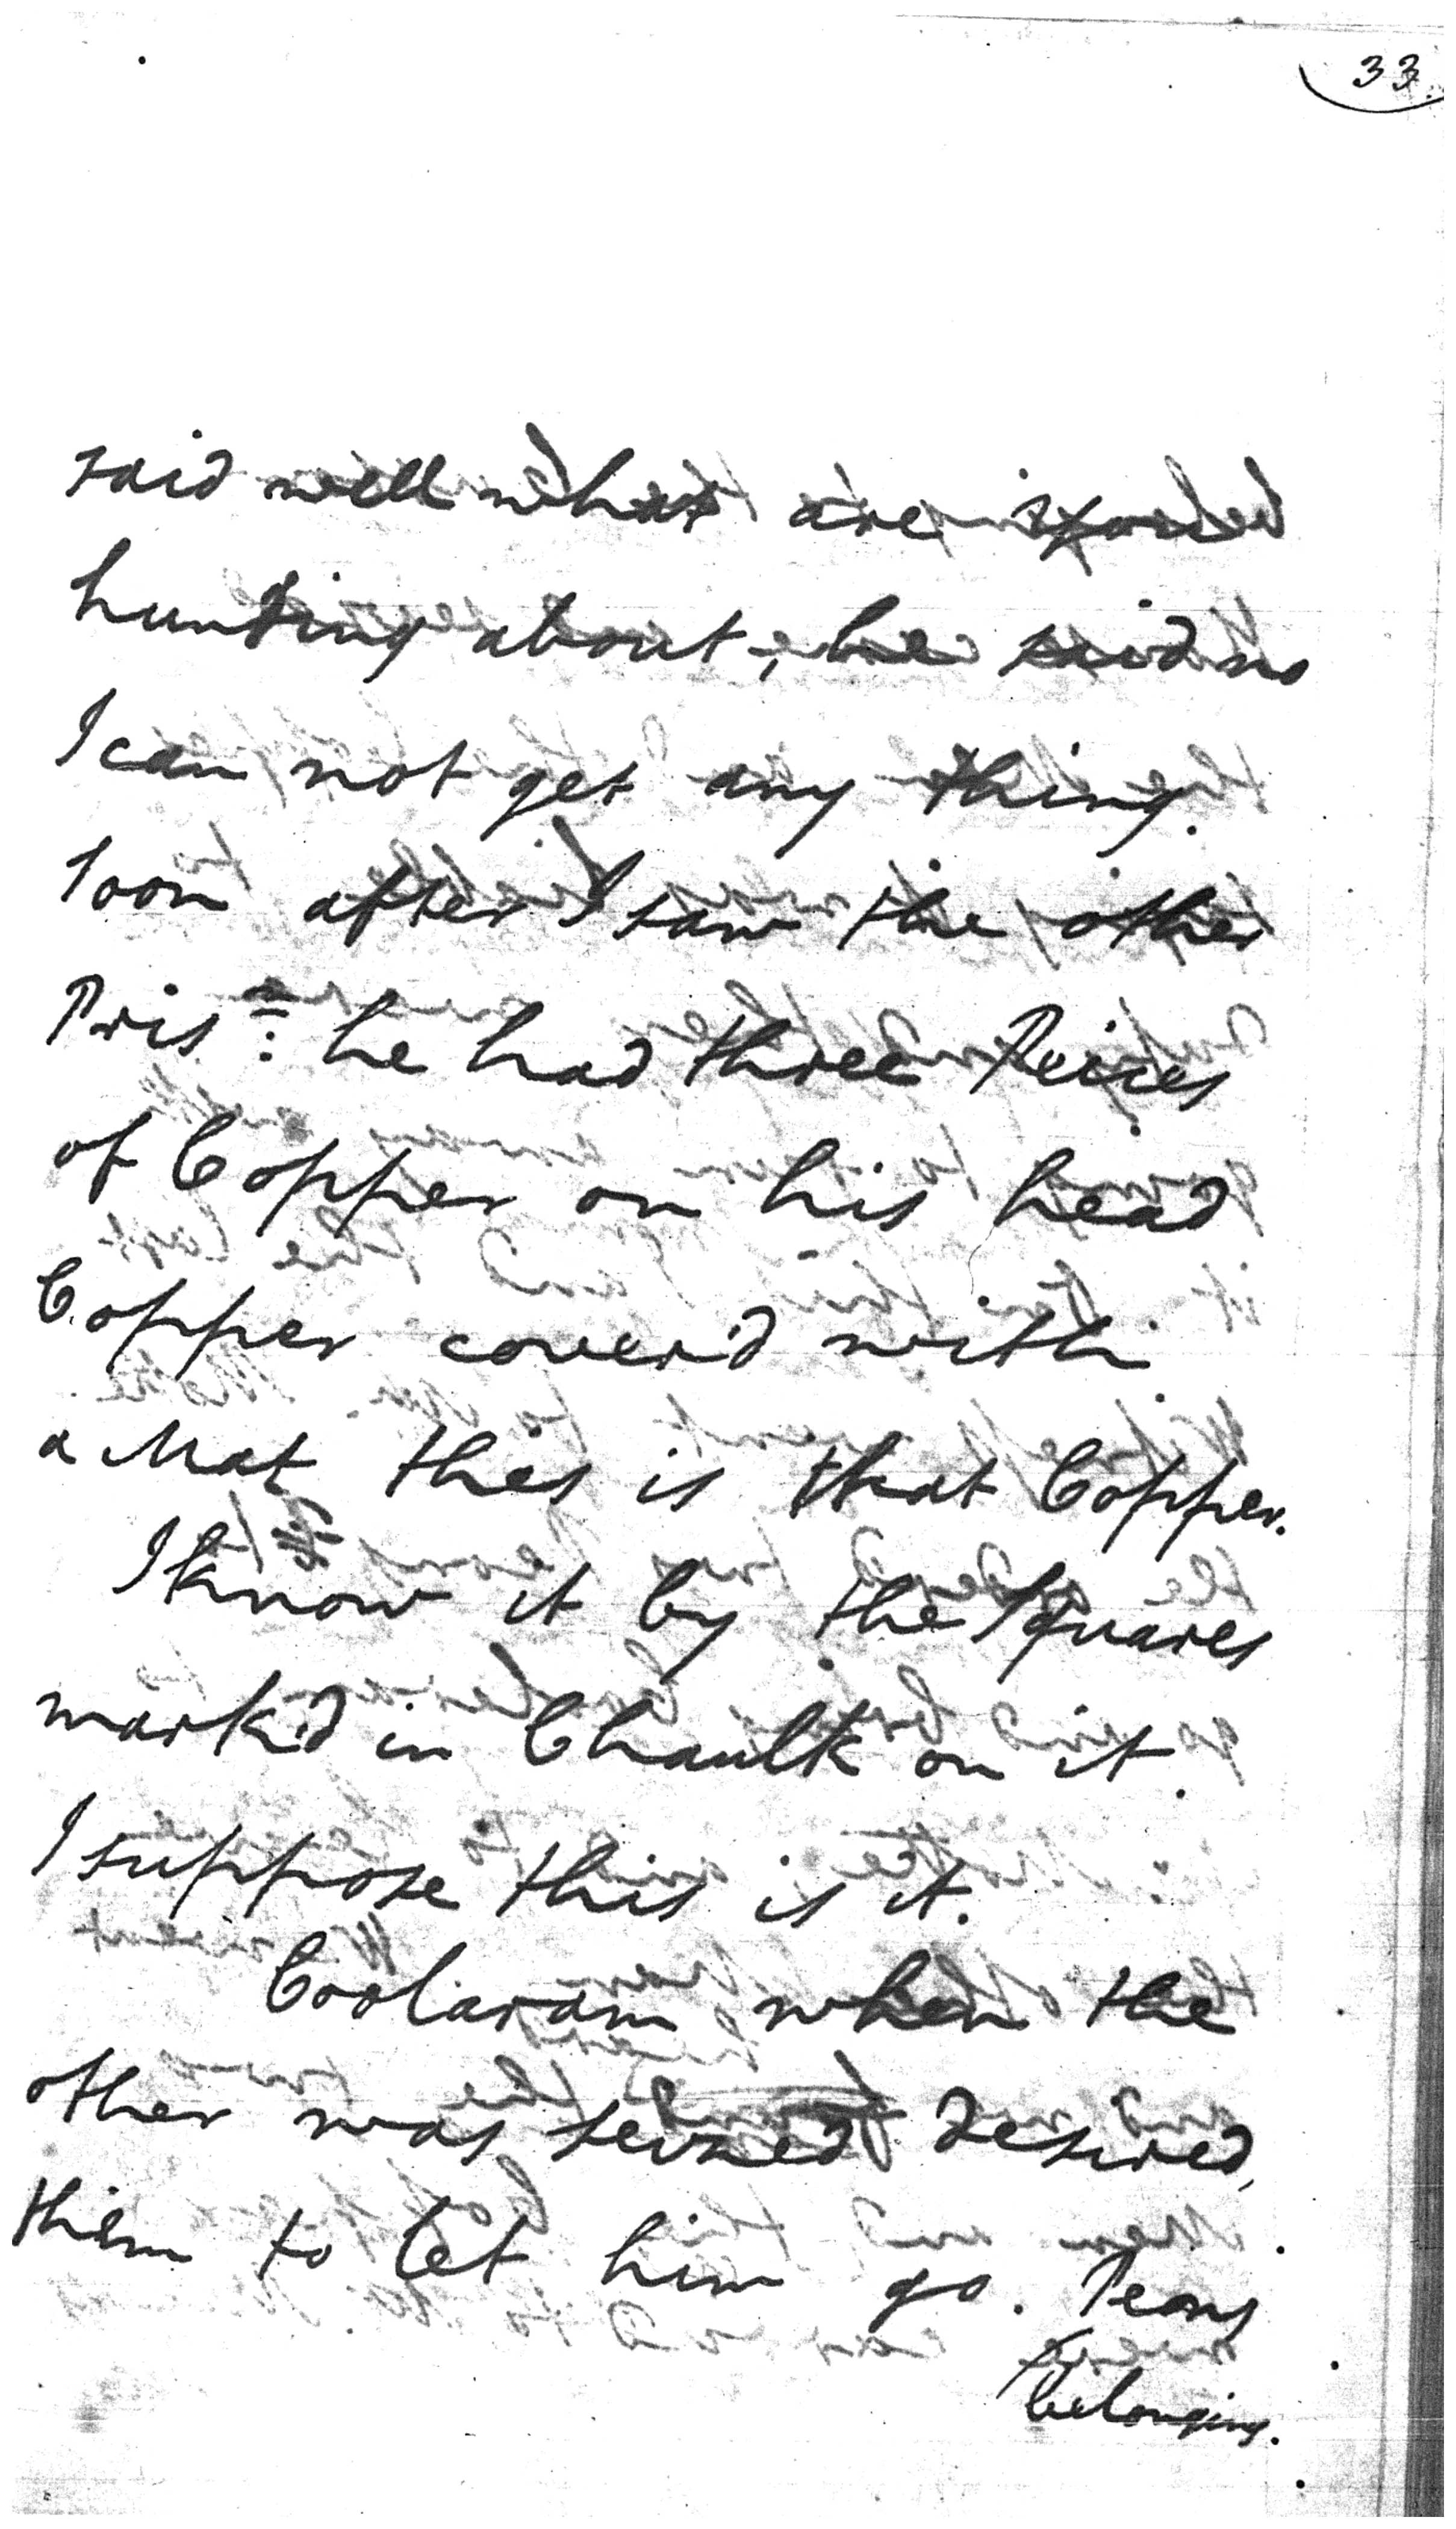 33.
said well what are
hunting about, he said no
I can not get any thing.
soon after I saw the other
Pris:n he had three Peices
of Copper on his head
Copper cover'd with
a Mat this is that Copper.
I know it by the Squares
mark'd in Chaulk on it.
I suppose this is it.
Coolaram when the
other was seized desired
them to let him go. Peons
belonging.